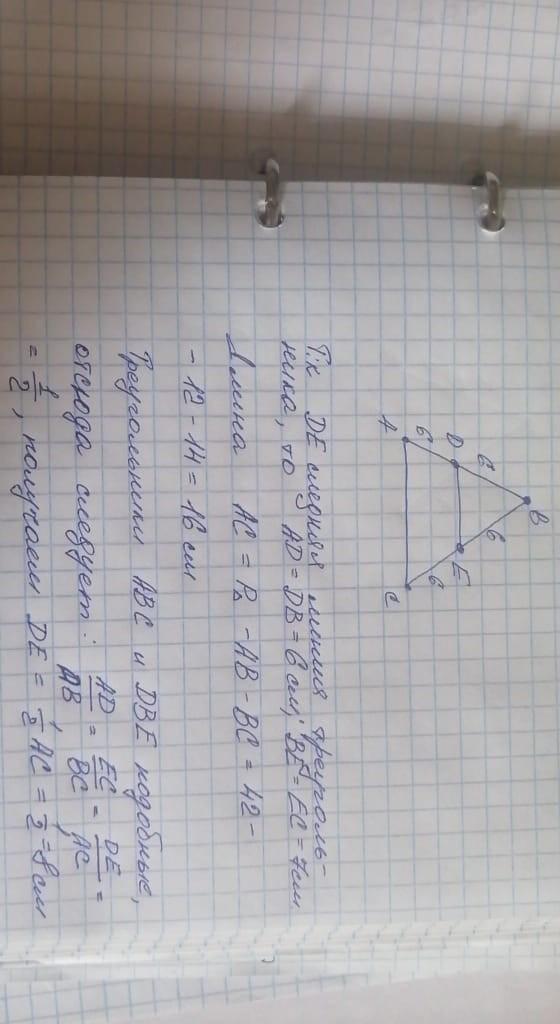 B
6
6
D
E
6
6
A
C
Т.к DE средняя линия треуголь-
ника, то AD = DB = 6 см; BE = EC = 7 см
Длина AC = P△ - AB - BC = 42 -
- 12 - 14 = 16 см
Треугольники ABC и DBE подобные,
отсюда следует: AD/AB = EC/BC = DE/AC =
= 1/2, получаем DE = 1/2 AC = 1/2 = 8 см